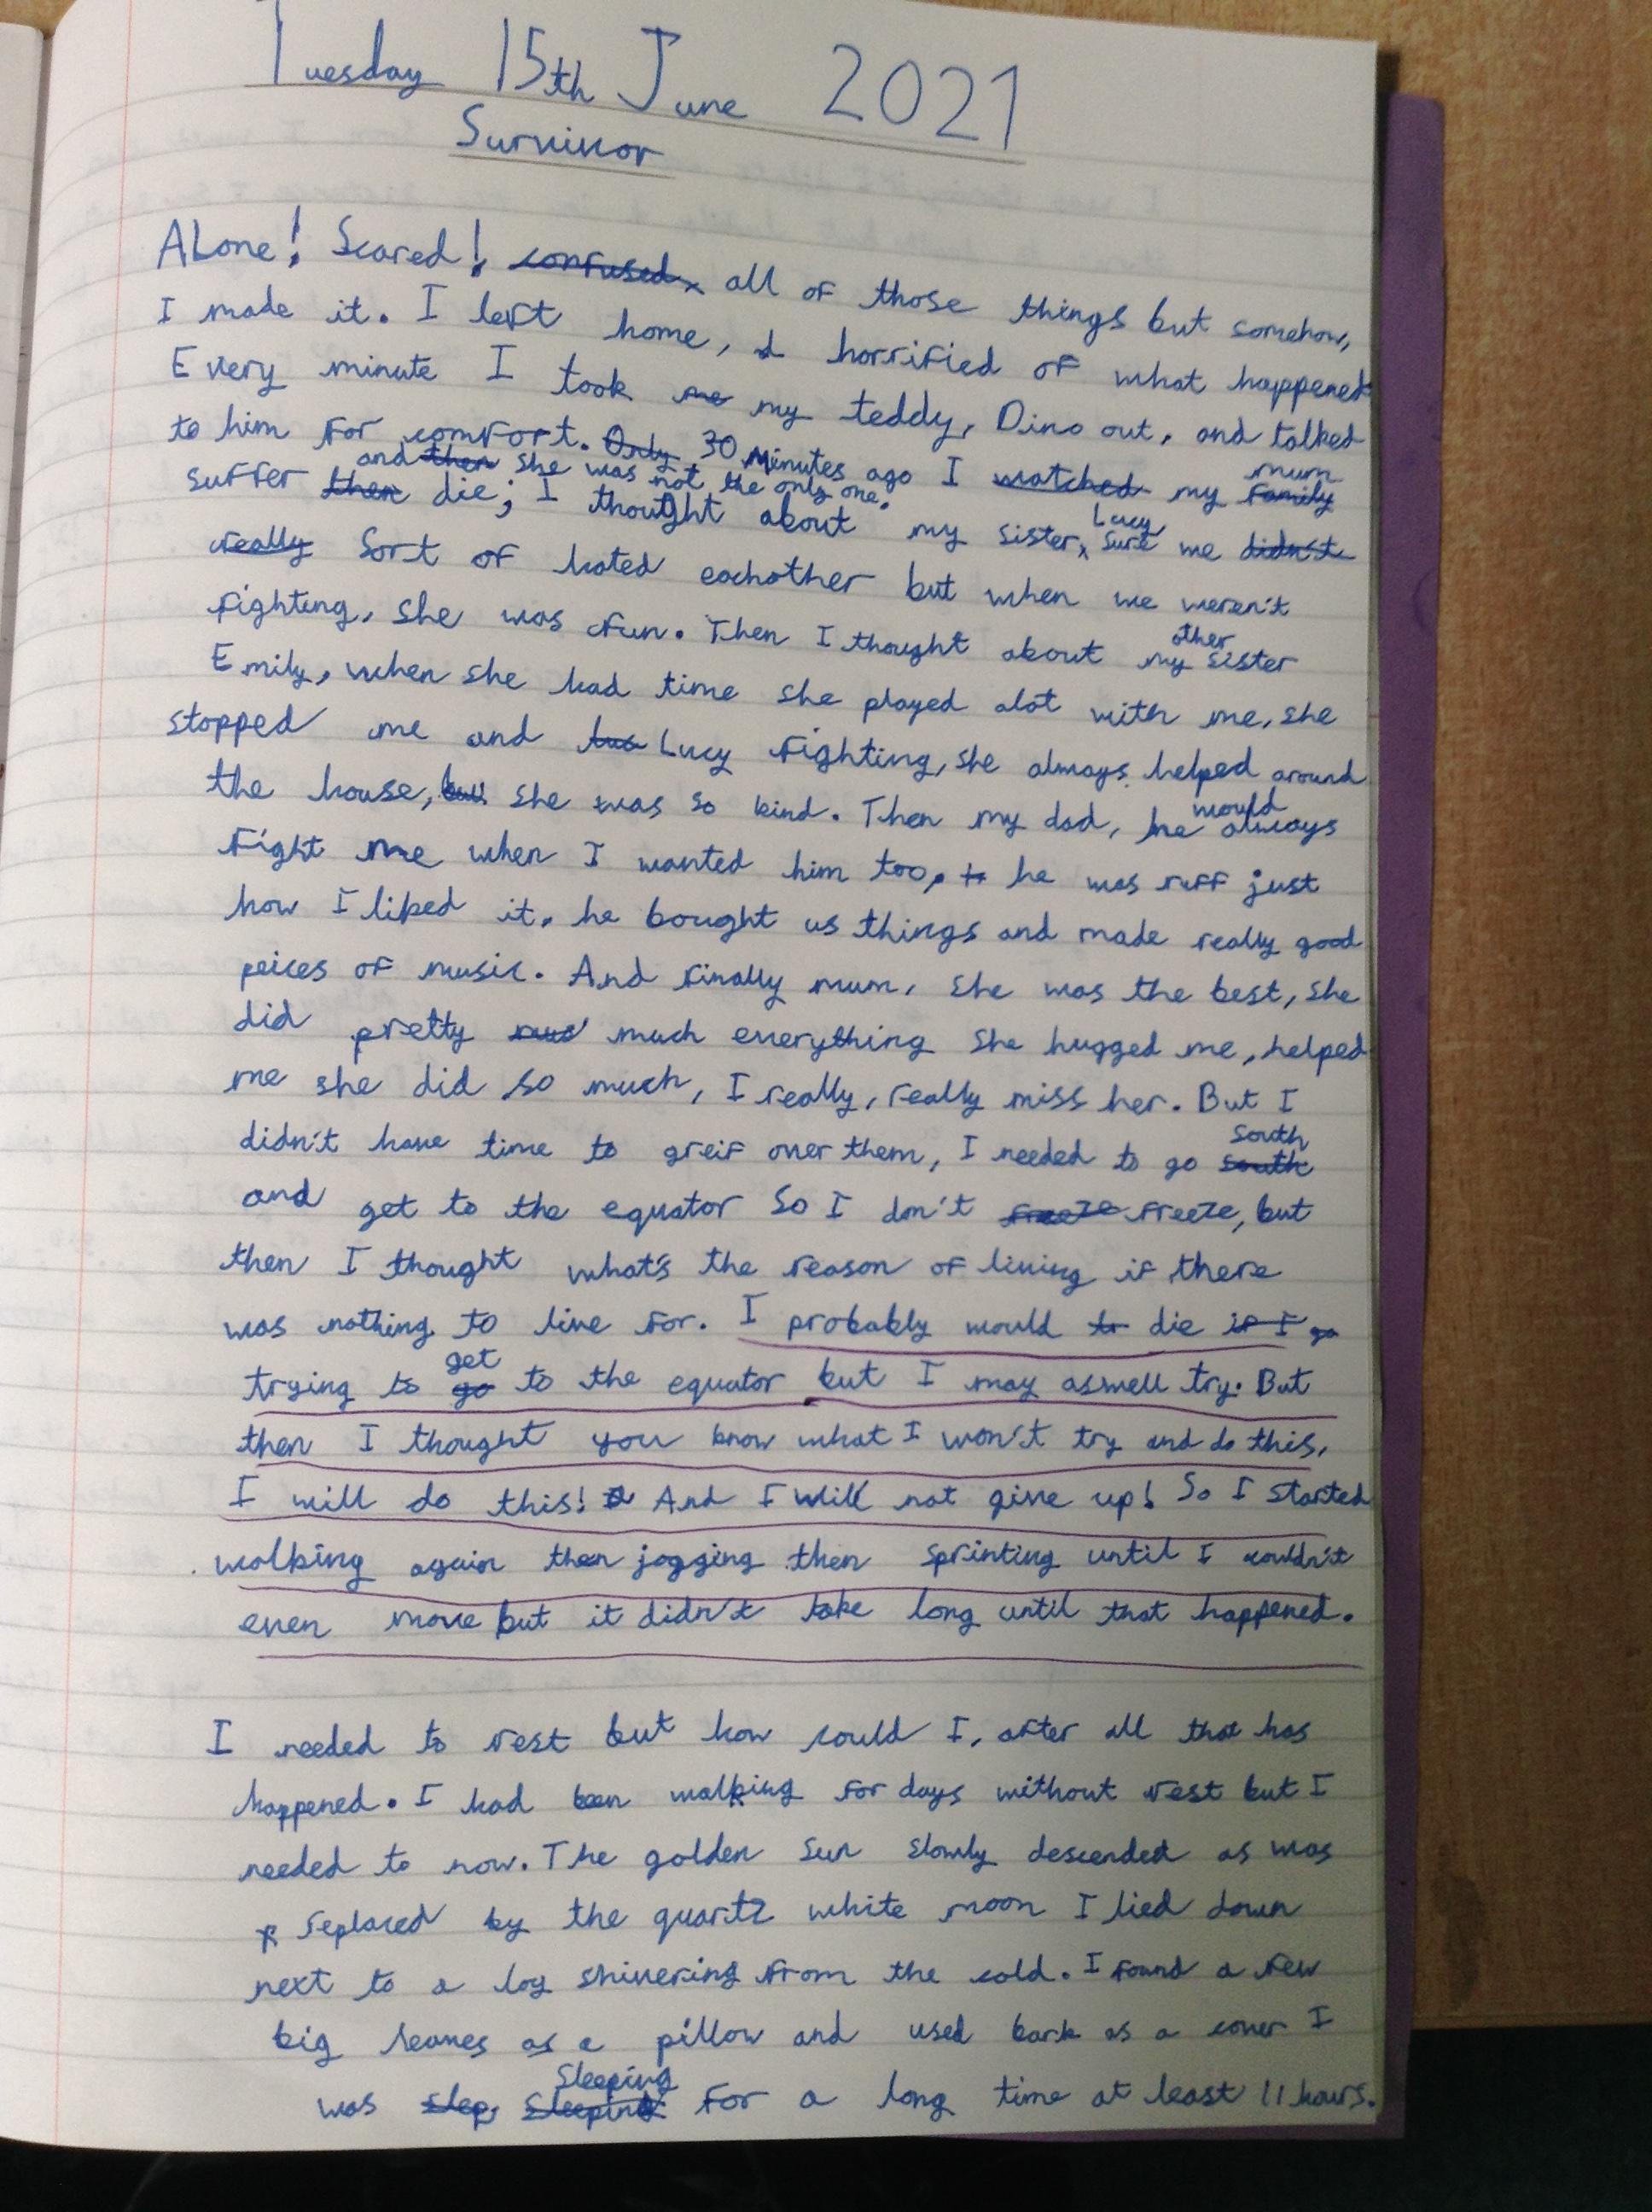 Tuesday 15th June 2021
Survivor
Alone! Scared! confused, all of those things but somehow,
I made it. I left home, I horrified of what happened
Every minute I took me my teddy, Dino out, and talked
to him for comfort. Only 30 minutes ago I watched my family mum
suffer then and then she was not the only one.
die; I thought about my sister, Lucy, sure we didn't
really sort of hated eachother but when we weren't
fighting, she was fun. Then I thought about my other sister
Emily, when she had time she played alot with me, she
stopped me and Lucy fighting, she always helped around
the house, but she was so kind. Then my dad, he would always
fight me when I wanted him too, he was ruff just
how I liked it, he bought us things and made really good
peices of music. And finally mum, she was the best, she
did pretty much everything she hugged me, helped
me she did so much, I really, really miss her. But I
didn't have time to greif over them, I needed to go south south
and get to the equator so I don't freeze freeze, but
then I thought what's the reason of living if there
was nothing to live for. I probably would to die if I go
trying to go get to the equator but I may aswell try. But
then I thought you know what I won't try and do this,
I will do this! And I will not give up! So I started
walking again then jogging then sprinting until I couldn't
even move but it didn't take long until that happened.
I needed to rest but how could I, after all that has
happened. I had been walking for days without rest but I
needed to now. The golden sun slowly descended as was
* replaced by the quartz white moon I lied down
next to a log shivering from the cold. I found a few
big leaves as a pillow and used bark as a cover I
was slep sleeping sleeping for a long time at least 11 hours.